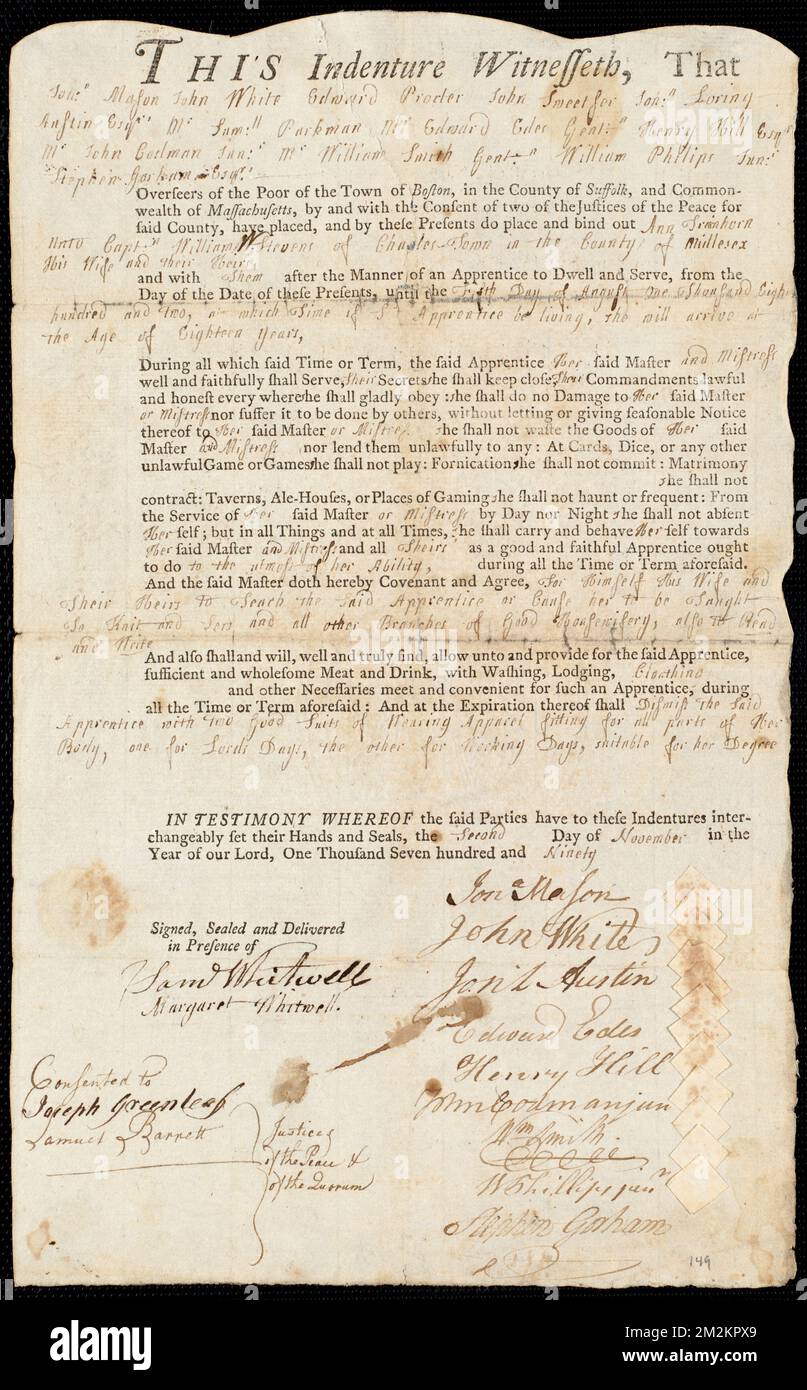 THIS Indenture Witnesseth, That
Jon.ª Mason John White Edward Procter John Sweetser Jon.ª Loring
Austin Esqrs Mr Sam.ll Parkman Mr Edward Edes Gent.n Henry Hill Esqr
Mr John Codman Jun.r Mr William Smith Gent.n William Philips Jun.r
Stephen Gorham Esqr
Overseers of the Poor of the Town of Boston, in the County of Suffolk, and Common-
wealth of Massachusetts, by and with the Consent of two of the Justices of the Peace for
said County, have placed, and by these Presents do place and bind out Ann
unto Capt.n William Stevens of Charles Town in the County of Midlesex
His Wife and their Heirs
and with Them after the Manner of an Apprentice to Dwell and Serve, from the
Day of the Date of these Presents, until the Day of August One Thousand Eight
hundred and two, at which Time if s.d Apprentice be living, she will arrive at
the Age of Eighteen Years,
During all which said Time or Term, the said Apprentice Her said Master and Mistress
well and faithfully shall Serve, Their Secrets she shall keep close, Their Commandments lawful
and honest every where she shall gladly obey: she shall do no Damage to Her said Master
or Mistress nor suffer it to be done by others, without letting or giving seasonable Notice
thereof to Her said Master or Mistress she shall not waste the Goods of Her said
Master and Mistress nor lend them unlawfully to any: At Cards, Dice, or any other
unlawful Game or Games she shall not play: Fornication she shall not commit: Matrimony
she shall not
contract: Taverns, Ale-Houses, or Places of Gaming she shall not haunt or frequent: From
the Service of Her said Master or Mistress by Day nor Night she shall not absent
Her self; but in all Things and at all Times, she shall carry and behave Her self towards
Her said Master and Mistress and all Theirs as a good and faithful Apprentice ought
to do to the utmost of her Ability, during all the Time or Term aforesaid.
And the said Master doth hereby Covenant and Agree, For Himself His Wife and
Their Heirs To Teach the said Apprentice or Cause her to be Taught
To Knit and Sew and all other Branches of Good Housewifery, also to Read
and Write
And also shall and will, well and truly find, allow unto and provide for the said Apprentice,
sufficient and wholesome Meat and Drink, with Washing, Lodging, Cloathing
and other Necessaries meet and convenient for such an Apprentice, during
all the Time or Term aforesaid: And at the Expiration thereof shall Dismiss the Said
Apprentice with two Good Suits of Wearing Apparel fitting for all parts of Her
Body, one for Lords Days, the other for Working Days, suitable for her Degree
IN TESTIMONY WHEREOF the said Parties have to these Indentures inter-
changeably set their Hands and Seals, the Second Day of November in the
Year of our Lord, One Thousand Seven hundred and Ninety
Signed, Sealed and Delivered
in Presence of
Saml Whitwell
Margaret Whitwell.
Consented to
Joseph Greenleaf
Samuel Barrett
Justices
of the Peace &
of the Quorum
Jonª Mason
John White
Jon L Austin
Edward Edes
Henry Hill
Jnn Codman jun
Wm Smith.
W Phillips junr
Stephen Gorham
149
alamy
Image ID: 2M2KPX9
www.alamy.com